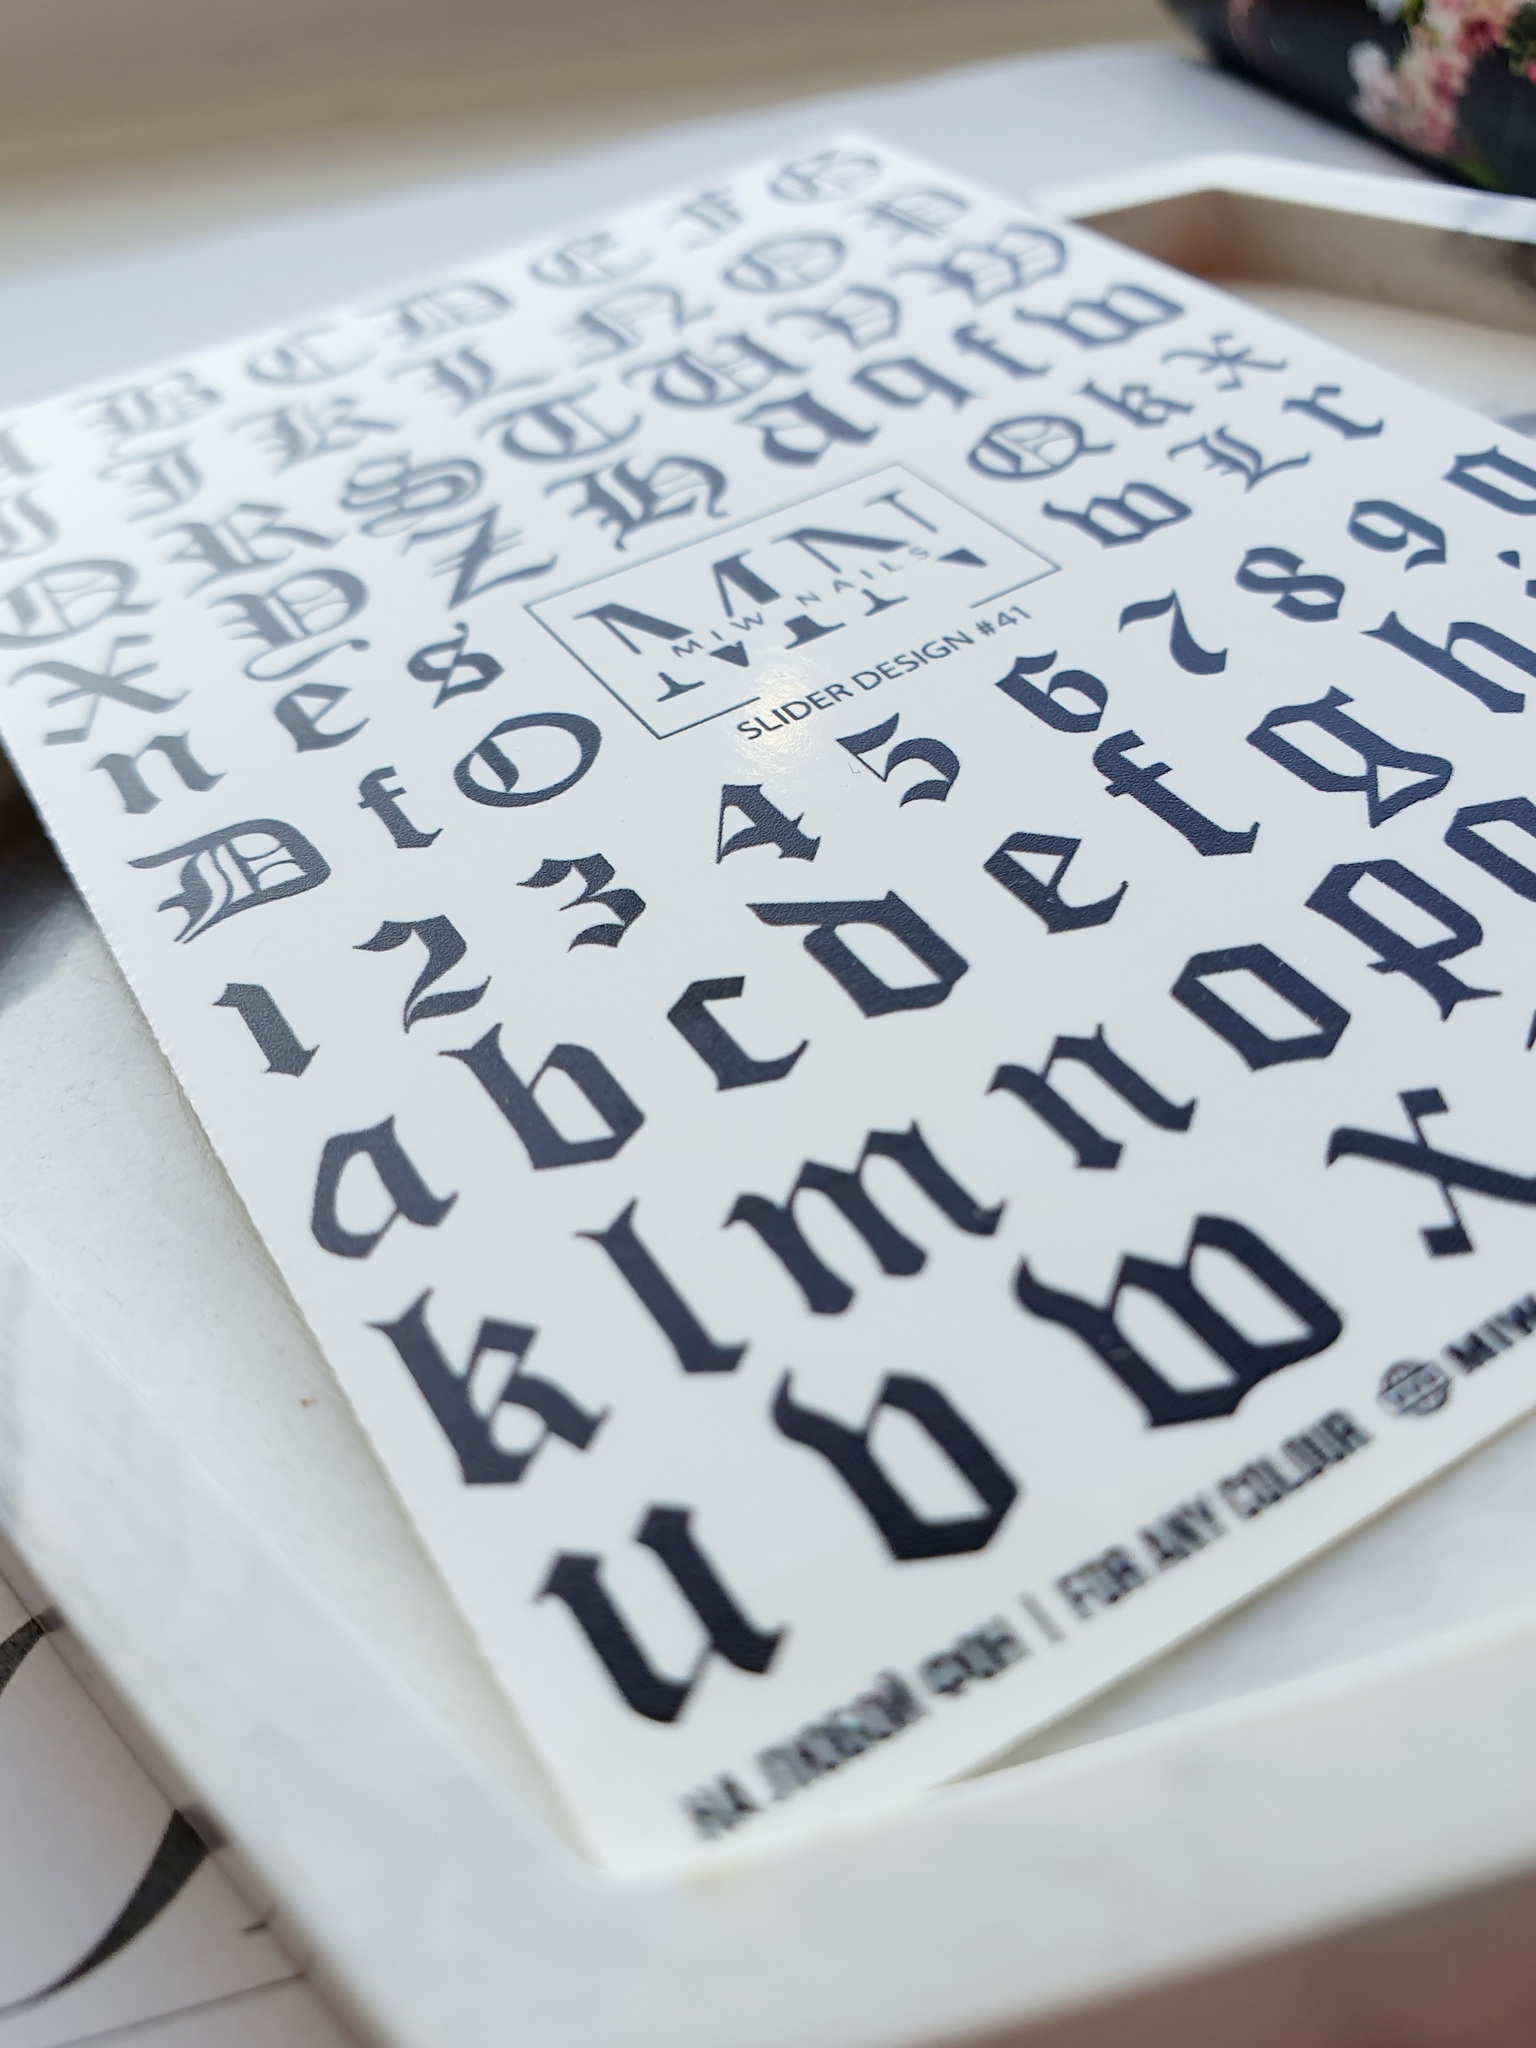 A B C D E F G
I J K L N O P
Q R S T U V W
X Y Z H a q f w
n e s Q k X
D f O w L r
MIW NAILS
SLIDER DESIGN #41
1 2 3 4 5 6 7 8 9
a b c d e f g h
k l m n o p
u v w x
НА ЛЮБОЙ ФОН | FOR ANY COLOUR MIW